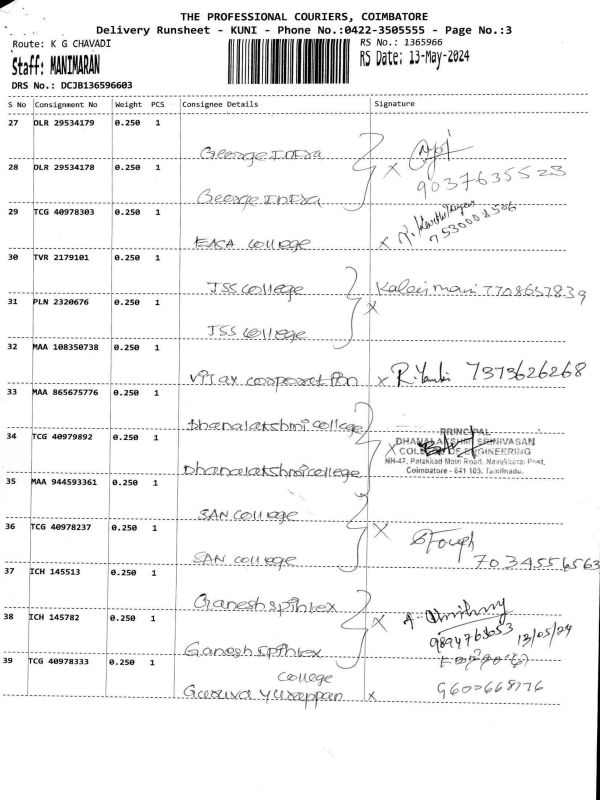 THE PROFESSIONAL COURIERS, COIMBATORE
Delivery Runsheet - KUNI - Phone No.:0422-3505555 - Page No.:3
Route: K G CHAVADI RS No.: 1365966
Staff: MANIMARAN RS Date: 13-May-2024
DRS No.: DCJB136596603
S No Consignment No Weight PCS Consignee Details Signature
27 DLR 29534179 0.250 1
George India x
28 DLR 29534178 0.250 1
9037635523
George India
29 TCG 40978303 0.250 1
EASA college x R. Karthikeyan
7530001506
30 TVR 2179101 0.250 1
JSS college Kalaimani 7708657839
31 PLN 2320676 0.250 1 x
JSS college
32 MAA 108350738 0.250 1
Vijay corporation x R. 7373626268
33 MAA 865675776 0.250 1
Dhanalakshmi college
34 TCG 40979892 0.250 1
PRINCIPAL
DHANALAKSHMI SRINIVASAN
x COLLEGE OF ENGINEERING
NH-47, Palakkad Main Road, Navakkarai Post,
Dhanalakshmi college Coimbatore - 641 105. Tamilnadu.
35 MAA 944593361 0.250 1
SAN college
36 TCG 40978237 0.250 1 x
SAN college 7034556563
37 ICH 145513 0.250 1
Ganesh spintex
38 ICH 145782 0.250 1 x
9894763053 13/05/24
Ganesh spintex
39 TCG 40978333 0.250 1
college
Guruvayurappan x 9600668176